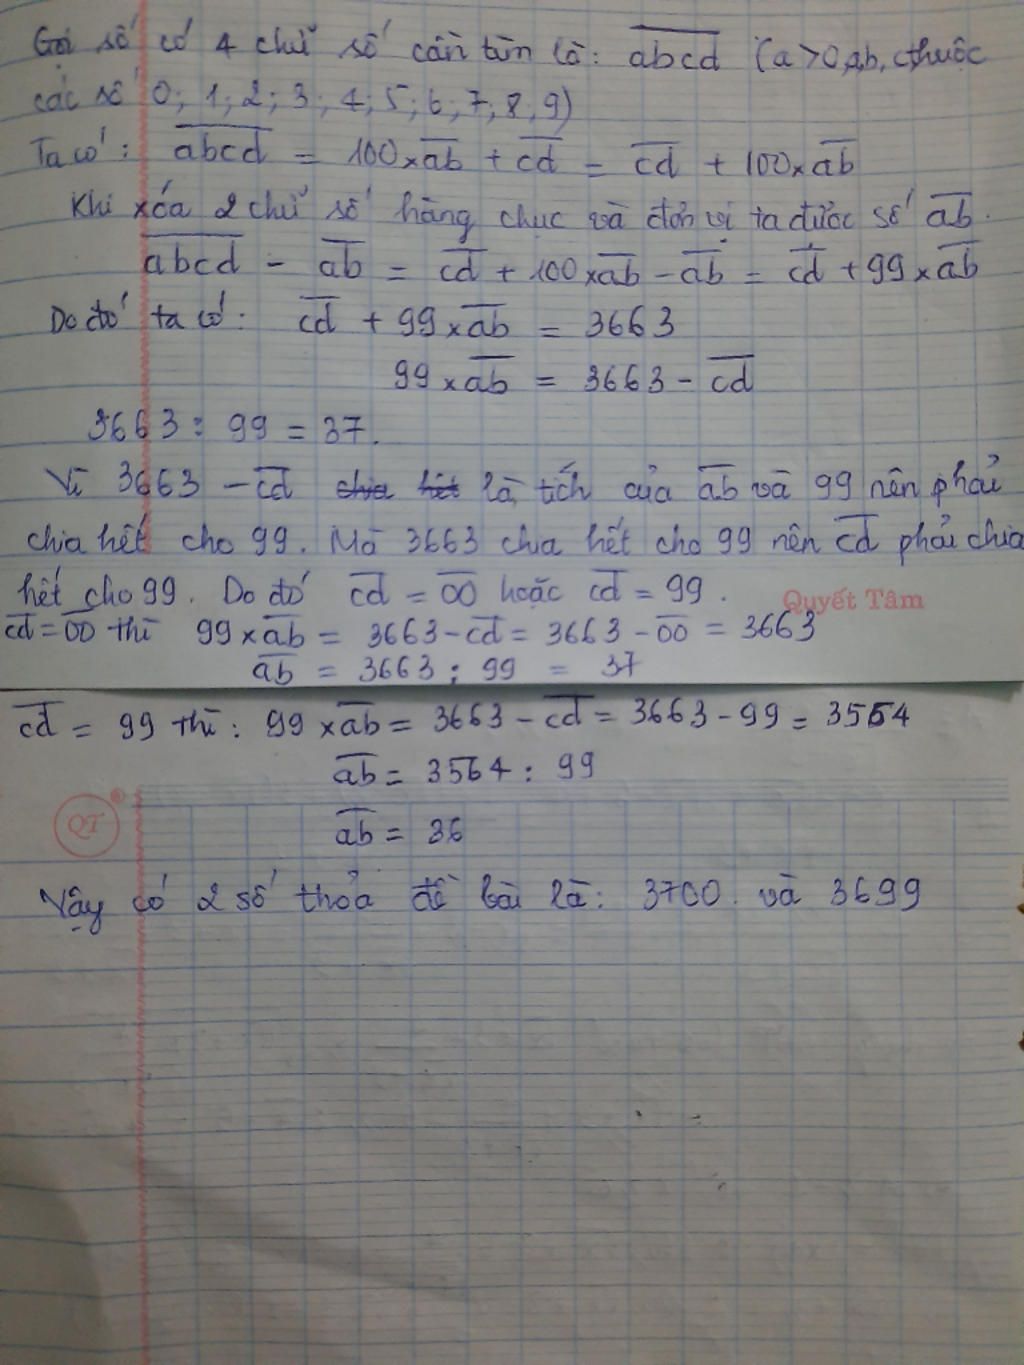 Gọi số có 4 chữ số cần tìm là: abcd (a>0, a,b,c,thuộc
các số 0; 1; 2; 3; 4; 5; 6; 7; 8; 9)
Ta có: abcd = 100 x ab + cd = cd + 100 x ab
Khi xóa 2 chữ số hàng chục và đơn vị ta được số ab.
abcd - ab = cd + 100 x ab - ab = cd + 99 x ab
Do đó ta có: cd + 99 x ab = 3663
99 x ab = 3663 - cd
3663 : 99 = 37.
Vì 3663 - cd chia hết là tích của ab và 99 nên phải
chia hết cho 99. Mà 3663 chia hết cho 99 nên cd phải chia
hết cho 99. Do đó cd = 00 hoặc cd = 99.
Quyết Tâm
cd = 00 thì 99 x ab = 3663 - cd = 3663 - 00 = 3663
ab = 3663 : 99 = 37
cd = 99 thì: 99 x ab = 3663 - cd = 3663 - 99 = 3564
ab = 3564 : 99
QT
ab = 36
Vậy có 2 số thỏa đề bài là: 3700 và 3699